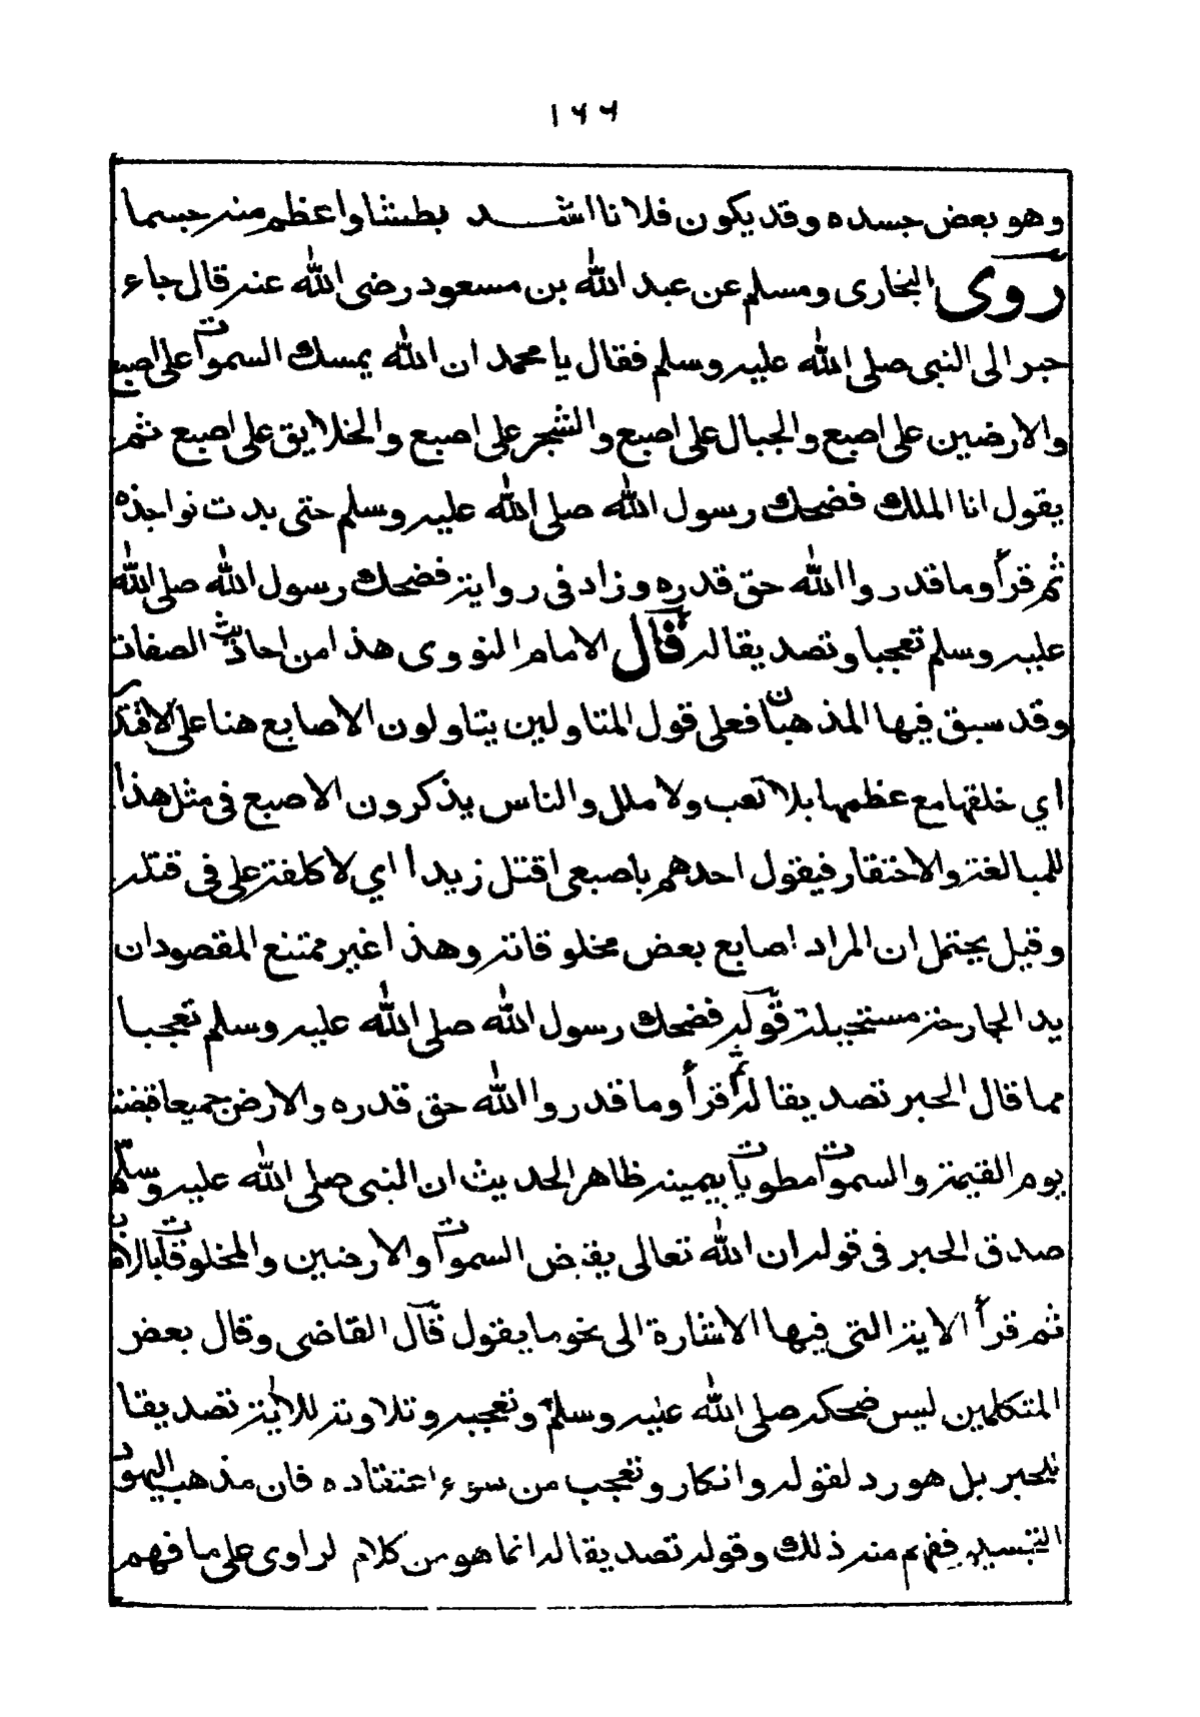 ١٦٦
وهو بعض جسده وقد يكون فلانا اشد بطشا واعظم منه جسما
روى البخارى ومسلم عن عبد الله بن مسعود رضى الله عنه قال جاء
حبر الى النبى صلى الله عليه وسلم فقال يا محمد ان الله يمسك السموات على اصبع
والارضين على اصبع والجبال على اصبع والشجر على اصبع والخلايق على اصبع ثم
يقول انا الملك فضحك رسول الله صلى الله عليه وسلم حتى بدت نواجذه
ثم قرأ وما قدروا الله حق قدره وزاد فى رواية فضحك رسول الله صلى الله
عليه وسلم تعجبا وتصديقا له قال الامام النووى هذا من احاديث الصفات
وقد سبق فيها المذهبان فعلى قول المتاولين يتاولون الاصابع هنا على الاقتدار
اي خلقها مع عظمها بلا تعب ولا ملل والناس يذكرون الاصبع فى مثل هذا
للمبالغة والاختقار فيقول احدهم باصبعى اقتل زيدا اي لا كلفة على فى قتله
وقيل يحتمل ان المراد اصابع بعض مخلوقاته وهذا غير ممتنع المقصود ان
يد الجارحة مستحيلة قوله فضحك رسول الله صلى الله عليه وسلم تعجبا
مما قال الحبر تصديقا له ثم قرأ وما قدروا الله حق قدره والارض جميعا قبضته
يوم القيمة والسموات مطويات بيمينه ظاهر الحديث ان النبى صلى الله عليه وسلم
صدق الحبر فى قوله ان الله تعالى يقبض السموات والارضين والمخلوقات
ثم قرأ الاية التى فيها الاشارة الى نحو ما يقول قال القاضى وقال بعض
المتكلمين ليس ضحكه صلى الله عليه وسلم وتعجبه وتلاوته للاية تصديقا
للحبر بل هو رد لقوله وانكار وتعجب من سوء اعتقاده فان مذهب اليهود
التجسيم ففهم منه ذلك وقوله تصديقا له انما هو من كلام لراوى على ما فهم